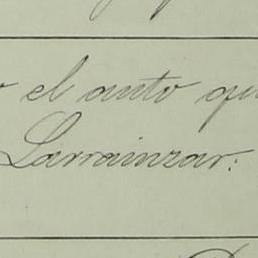 o el auto qu
Larrainzar: